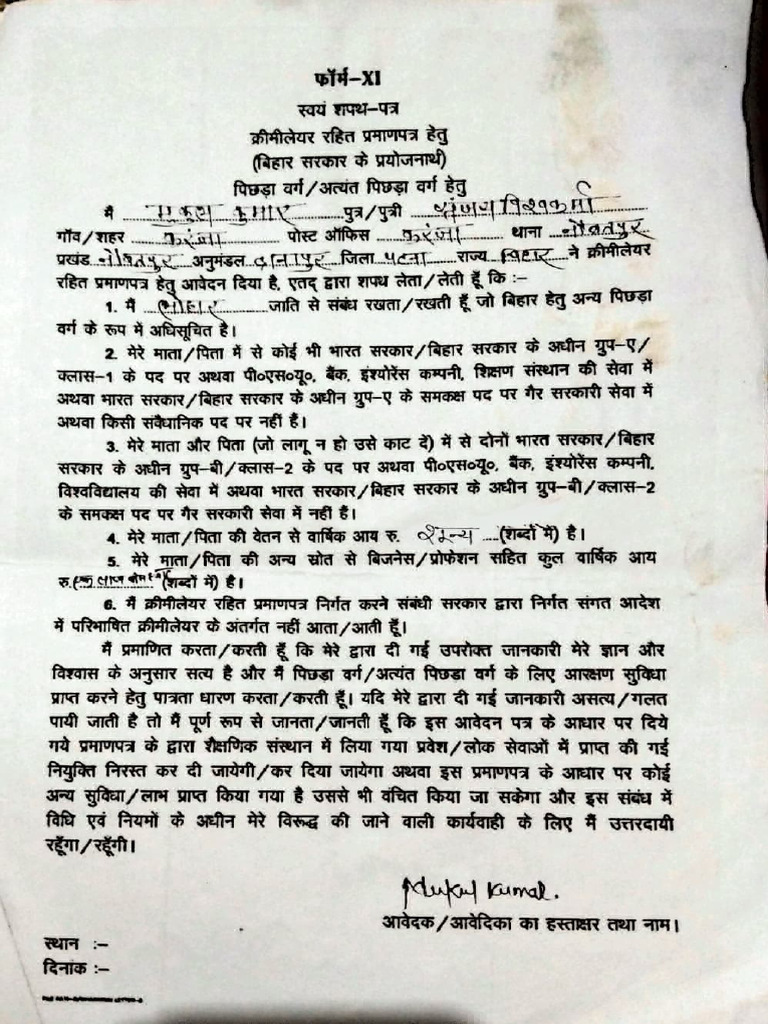 फॉर्म-XI
स्वयं शपथ-पत्र
क्रीमीलेयर रहित प्रमाणपत्र हेतु
(बिहार सरकार के प्रयोजनार्थ)
पिछड़ा वर्ग/अत्यंत पिछड़ा वर्ग हेतु
मैं मुकुल कुमार पुत्र/पुत्री संजय विश्वकर्मा
गाँव/शहर करंजा पोस्ट ऑफिस करंजा थाना नौबतपुर
प्रखंड नौबतपुर अनुमंडल दानापुर जिला पटना राज्य बिहार ने क्रीमीलेयर
रहित प्रमाणपत्र हेतु आवेदन दिया है, एतद् द्वारा शपथ लेता/लेती हूँ कि :–
1. मैं लोहार जाति से संबंध रखता/रखती हूँ जो बिहार हेतु अन्य पिछड़ा
वर्ग के रूप में अधिसूचित है।
2. मेरे माता/पिता में से कोई भी भारत सरकार/बिहार सरकार के अधीन ग्रुप-ए/
क्लास-1 के पद पर अथवा पी०एस०यू०, बैंक, इंश्योरेंस कम्पनी, शिक्षण संस्थान की सेवा में
अथवा भारत सरकार/बिहार सरकार के अधीन ग्रुप-ए के समकक्ष पद पर गैर सरकारी सेवा में
अथवा किसी संवैधानिक पद पर नहीं हैं।
3. मेरे माता और पिता (जो लागू न हो उसे काट दें) में से दोनों भारत सरकार/बिहार
सरकार के अधीन ग्रुप-बी/क्लास-2 के पद पर अथवा पी०एस०यू०, बैंक, इंश्योरेंस कम्पनी,
विश्वविद्यालय की सेवा में अथवा भारत सरकार/बिहार सरकार के अधीन ग्रुप-बी/क्लास-2
के समकक्ष पद पर गैर सरकारी सेवा में नहीं हैं।
4. मेरे माता/पिता की वेतन से वार्षिक आय रु. शून्य (शब्दों में) है।
5. मेरे माता/पिता की अन्य स्रोत से बिजनेस/प्रोफेशन सहित कुल वार्षिक आय
रु. एक लाख (शब्दों में) है।
6. मैं क्रीमीलेयर रहित प्रमाणपत्र निर्गत करने संबंधी सरकार द्वारा निर्गत संगत आदेश
में परिभाषित क्रीमीलेयर के अंतर्गत नहीं आता/आती हूँ।
मैं प्रमाणित करता/करती हूँ कि मेरे द्वारा दी गई उपरोक्त जानकारी मेरे ज्ञान और
विश्वास के अनुसार सत्य है और मैं पिछड़ा वर्ग/अत्यंत पिछड़ा वर्ग के लिए आरक्षण सुविधा
प्राप्त करने हेतु पात्रता धारण करता/करती हूँ। यदि मेरे द्वारा दी गई जानकारी असत्य/गलत
पायी जाती है तो मैं पूर्ण रूप से जानता/जानती हूँ कि इस आवेदन पत्र के आधार पर दिये
गये प्रमाणपत्र के द्वारा शैक्षणिक संस्थान में लिया गया प्रवेश/लोक सेवाओं में प्राप्त की गई
नियुक्ति निरस्त कर दी जायेगी/कर दिया जायेगा अथवा इस प्रमाणपत्र के आधार पर कोई
अन्य सुविधा/लाभ प्राप्त किया गया है उससे भी वंचित किया जा सकेगा और इस संबंध में
विधि एवं नियमों के अधीन मेरे विरूद्ध की जाने वाली कार्यवाही के लिए मैं उत्तरदायी
रहूँगा/रहूँगी।
Mukul Kumar.
आवेदक/आवेदिका का हस्ताक्षर तथा नाम।
स्थान :–
दिनांक :–